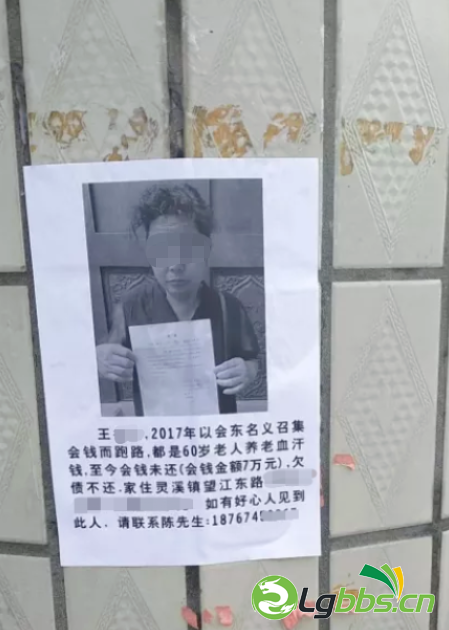 王 ,2017年以会东名义召集
会钱而跑路,都是60岁老人养老血汗
钱,至今会钱未还(会钱金额7万元),欠
债不还.家住灵溪镇望江东路
如有好心人见到
此人,请联系陈先生:187674
Lgbbs.cn